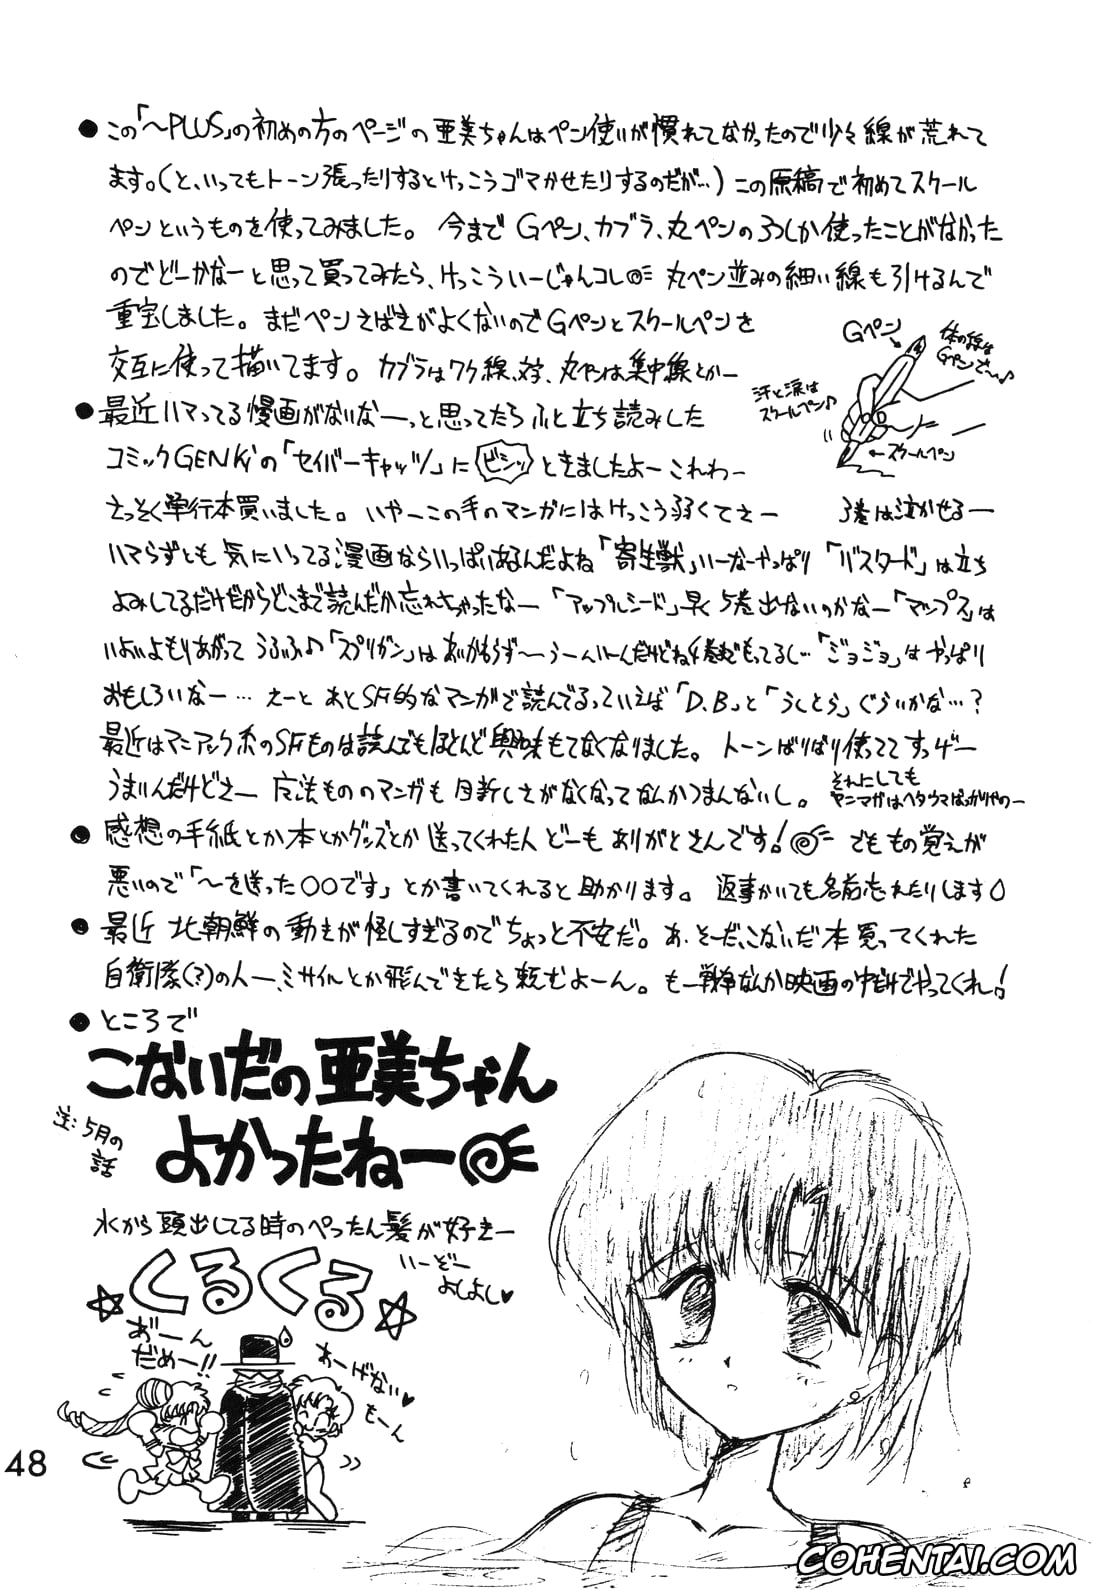 ●この「〜PLUS」の初めの方のページの亜美ちゃんはペン使いが慣れてなかったので少々線が荒れて
ます。(と、いってもトーン張ったりするとけっこうゴマかせたりするのだが…)この原稿で初めてスクール
ペンというものを使ってみました。今までGペン、カブラ、丸ペンの3つしか使ったことがなかった
のでどーかなーと思って買ってみたら、けっこういーじゃんコレ 丸ペン並みの細い線も引けるんで
重宝しました。まだペンさばきがよくないのでGペンとスクールペンを
交互に使って描いてます。カブラはワク線、文字、丸ペンは集中線とかー
Gペン
体の線は
Gペンで〜♪
汗と涙は
スクールペン♪
←スクールペン
●最近ハマってる漫画がないなーっと思ってたらふと立ち読みした
コミックGENKiの「セイバーキャッツ」に ビシッ ときましたよーこれわー
さっそく単行本買いました。いやーこの手のマンガにはけっこう弱くてさー 3巻は泣かせるー
ハマらずとも気にいってる漫画ならいっぱいあるんだよね「寄生獣」いーなーやっぱり「バスタード」は立ち
よみしてるだけだからどこまで読んだか忘れちゃったなー「アップルシード」早く5巻出ないのかなー「マップス」は
いよいよもりあがって うふふ♪「スプリガン」はあいかわらず〜うーんいーんだけどね4巻までもってるし…「ジョジョ」はやっぱり
おもしろいなー…えーと あとSF的なマンガで読んでるっていえば「D.B」と「うしとら」ぐらいかな…?
最近はマニアック系のSFものは読んでもほとんど興味もてなくなりました。トーンばりばり使っててすっげー
うまいんだけどさー 魔法もののマンガも目新しさがなくなってなんかつまんないし。
それにしても
ヤニマガはヘタウマばっかりやのー
●感想の手紙とか本とかグッズとか送ってくれた人どーもありがとさんです! でももの覚えが
悪いので「〜を送った〇〇です」とか書いてくれると助かります。返事かいても名前忘れたりします
●最近北朝鮮の動きが怪しすぎるのでちょっと不安だ。あ、そーだ、こないだ本買ってくれた
自衛隊(?)の人ー、ミサイルとか飛んできたら頼むよーん。もー戦争なんか映画の中だけでやってくれ!
●ところで
こないだの亜美ちゃん
よかったねー
注:5月の
話
水から頭出してる時のぺったん髪が好きー
いーぞー
よしよし♥
☆くるくる☆
あ゛ーん
だめー!!
あーげない♥
もーん
48
COHENTAI.COM